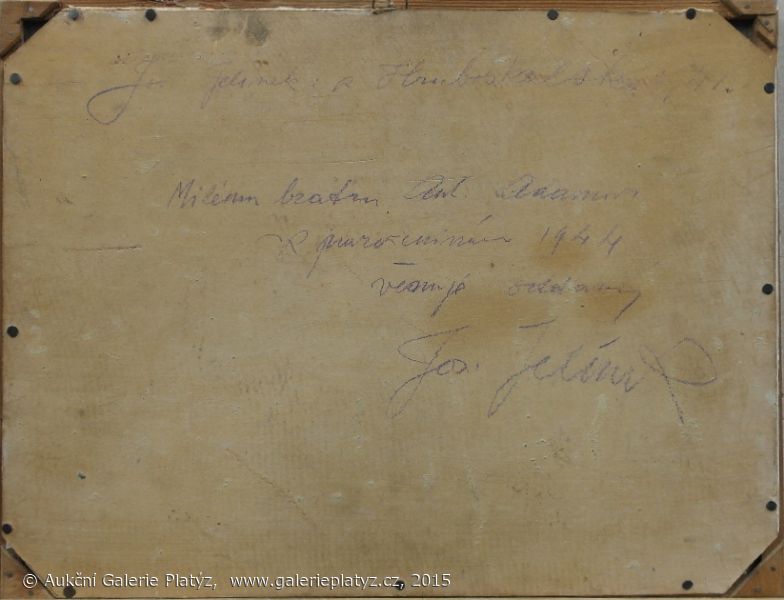 Jos. Jelínek: z Hruboskalska
Milému bratru Ant. Adamovi
k narozeninám 1944
věnuje oddaný
Jos. Jelínek
© Aukční Galerie Platýz, www.galerieplatyz.cz, 2015